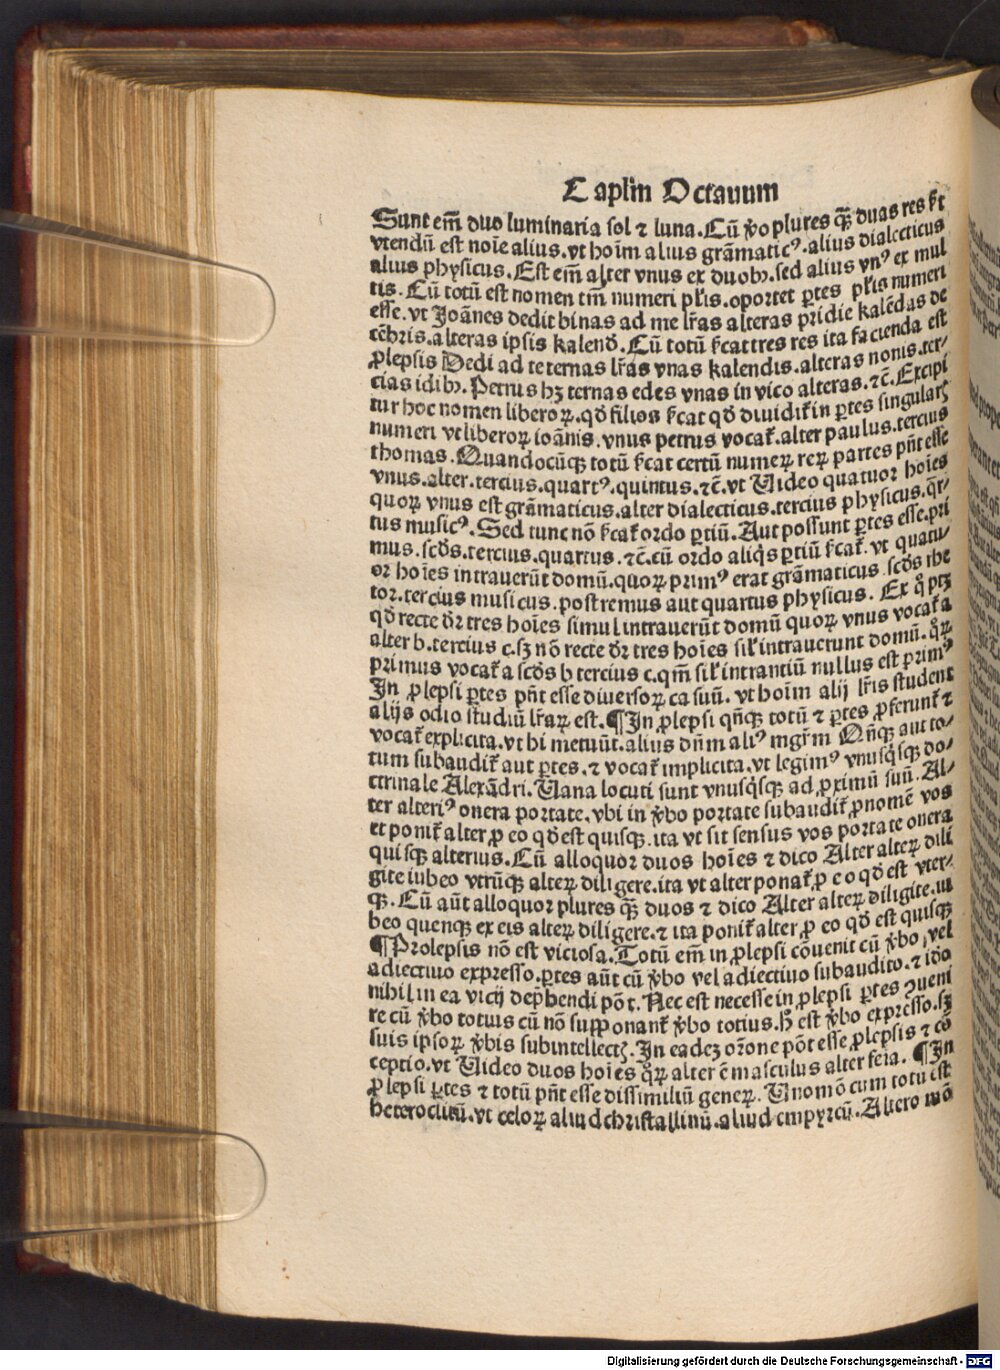 Caplm̄ Octauum
Sunt em̄ duo luminaria sol ⁊ luna. Cū ꝟo plures qꝫ̄ duas res ſ̄cat
vtendū est noīe alius. vt hoīm alius grāmaticꝰ. alius dialecticus
alius physicus. Est em̄ alter vnus ex duobꝫ. sed alius vnꝰ ex mul
tis. Cū totū est nomen tm̄ numeri pl̄is. oportet ꝑtes pl̄is numeri
esse. vt Joānes dedit binas ad me lr̄as alteras pridie kalēdas de
cēbris. alteras ipsis kalend̄. Cū totū ſ̄cat tres res ita facienda est
ꝓlepsis Dedi ad te ternas lr̄as vnas kalendis. alteras nonis. ter⸗
cias idibꝫ. Petrus hꝫ ternas edes vnas in vico alteras. ⁊c̄. Excipi
tur hoc nomen liberoꝝ. qd̄ filios ſ̄cat qd̄ diuidit̄ in ꝑtes singularꝫ
numeri vt liberoꝝ ioānis. vnus petrus vocat̄. alter paulus. tercius
thomas. Quandocūqꝫ totū ſ̄cat certū numeꝝ reꝝ partes pn̄t esse
vnus. alter. tercius. quartꝰ. quintus. ⁊c̄. vt Video quatuor hoīes
quoꝝ vnus est grāmaticus. alter dialecticus. tercius physicus. q̄r⸗
tus musicꝰ. Sed tunc nō ſ̄cat̄ ordo ꝑtiū. Aut possunt ꝑtes esse. pri
mus. scd̄s. tercius. quartus. ⁊c̄. cū ordo aliq̇s ꝑtiū ſ̄cat̄. vt quatu⸗
or hoīes intrauerūt domū. quoꝝ primꝰ erat grāmaticus scd̄s rhe
tor. tercius musicus. postremus aut quartus physicus. Ex q̊ ptꝫ
qd̄ recte dr̄ tres hoīes simul intrauerūt domū quoꝝ vnus vocat̄ a
alter b. tercius c. sꝫ nō recte dr̄ tres hoīes sil̄ intrauerunt domū. qꝝ̄
primus vocat̄ a scd̄s b tercius c. qm̄ sil̄ intrantiū nullus est primꝰ
In ꝓlepsi ꝑtes pn̄t esse diuersoꝝ casuū. vt hoīm alij lr̄is student
alijs odio studiū lr̄aꝝ est. ¶In ꝓlepsi qn̄qꝫ totū ⁊ ꝑtes ꝓferunt̄ ⁊
vocat̄ explicita. vt hi metuūt. alius dn̄m aliꝰ mgr̄m Qn̄qꝫ aut to⸗
tum subaudit̄ aut ꝑtes. ⁊ vocat̄ implicita. vt legimꝰ vnusq̇sqꝫ do⸗
ctrinale Alexādri. Uana locuti sunt vnusq̇sqꝫ ad ꝓximū suū. Al⸗
ter alteriꝰ onera portate. vbi in ꝟbo portate subaudit̄ ꝓnomē vos
et ponit̄ alter ꝓ eo qd̄ est quisqꝫ. ita vt sit sensus vos portate onera
quisqꝫ alterius. Cū alloquor duos hoīes ⁊ dico Alter alteꝝ dili
gite iubeo vtrūqꝫ alteꝝ diligere. ita vt alter ponat̄ ꝓ eo qd̄ est vter⸗
qꝫ. Cū aūt alloquor plures qꝫ̄ duos ⁊ dico Alter alteꝝ diligite. iu
beo quenqꝫ ex eis alteꝝ diligere. ⁊ ita ponit̄ alter ꝓ eo qd̄ est quisqꝫ
¶Prolepsis nō est viciosa. Totū em̄ in ꝓlepsi cōuenit cū ꝟbo vel
adiectiuo expresso. ꝑtes aūt cū ꝟbo vel adiectiuo subaudito. ⁊ iō
nihil in ea vicij dep̄hendi pōt. Nec est necesse in ꝓlepsi ꝑtes ꝯueni
re cū ꝟbo totius cū nō supponant̄ ꝟbo totius. h̄ est ꝟbo expresso. sꝫ
suis ipsoꝝ ꝟbis subintellectꝫ. In eadeꝫ or̄one pōt esse ꝓlepsis ⁊ cō
ceptio. vt Video duos hoīes qꝝ̄ alter ē masculus alter feīa. ¶In
ꝓlepsi ꝑtes ⁊ totū pn̄t esse dissimiliū geneꝝ. Unomō cum totū est
heteroclitū. vt celoꝝ aliud christallinū. aliud empyreū. Altero mō
Digitalisierung gefördert durch die Deutsche Forschungsgemeinschaft - DFG